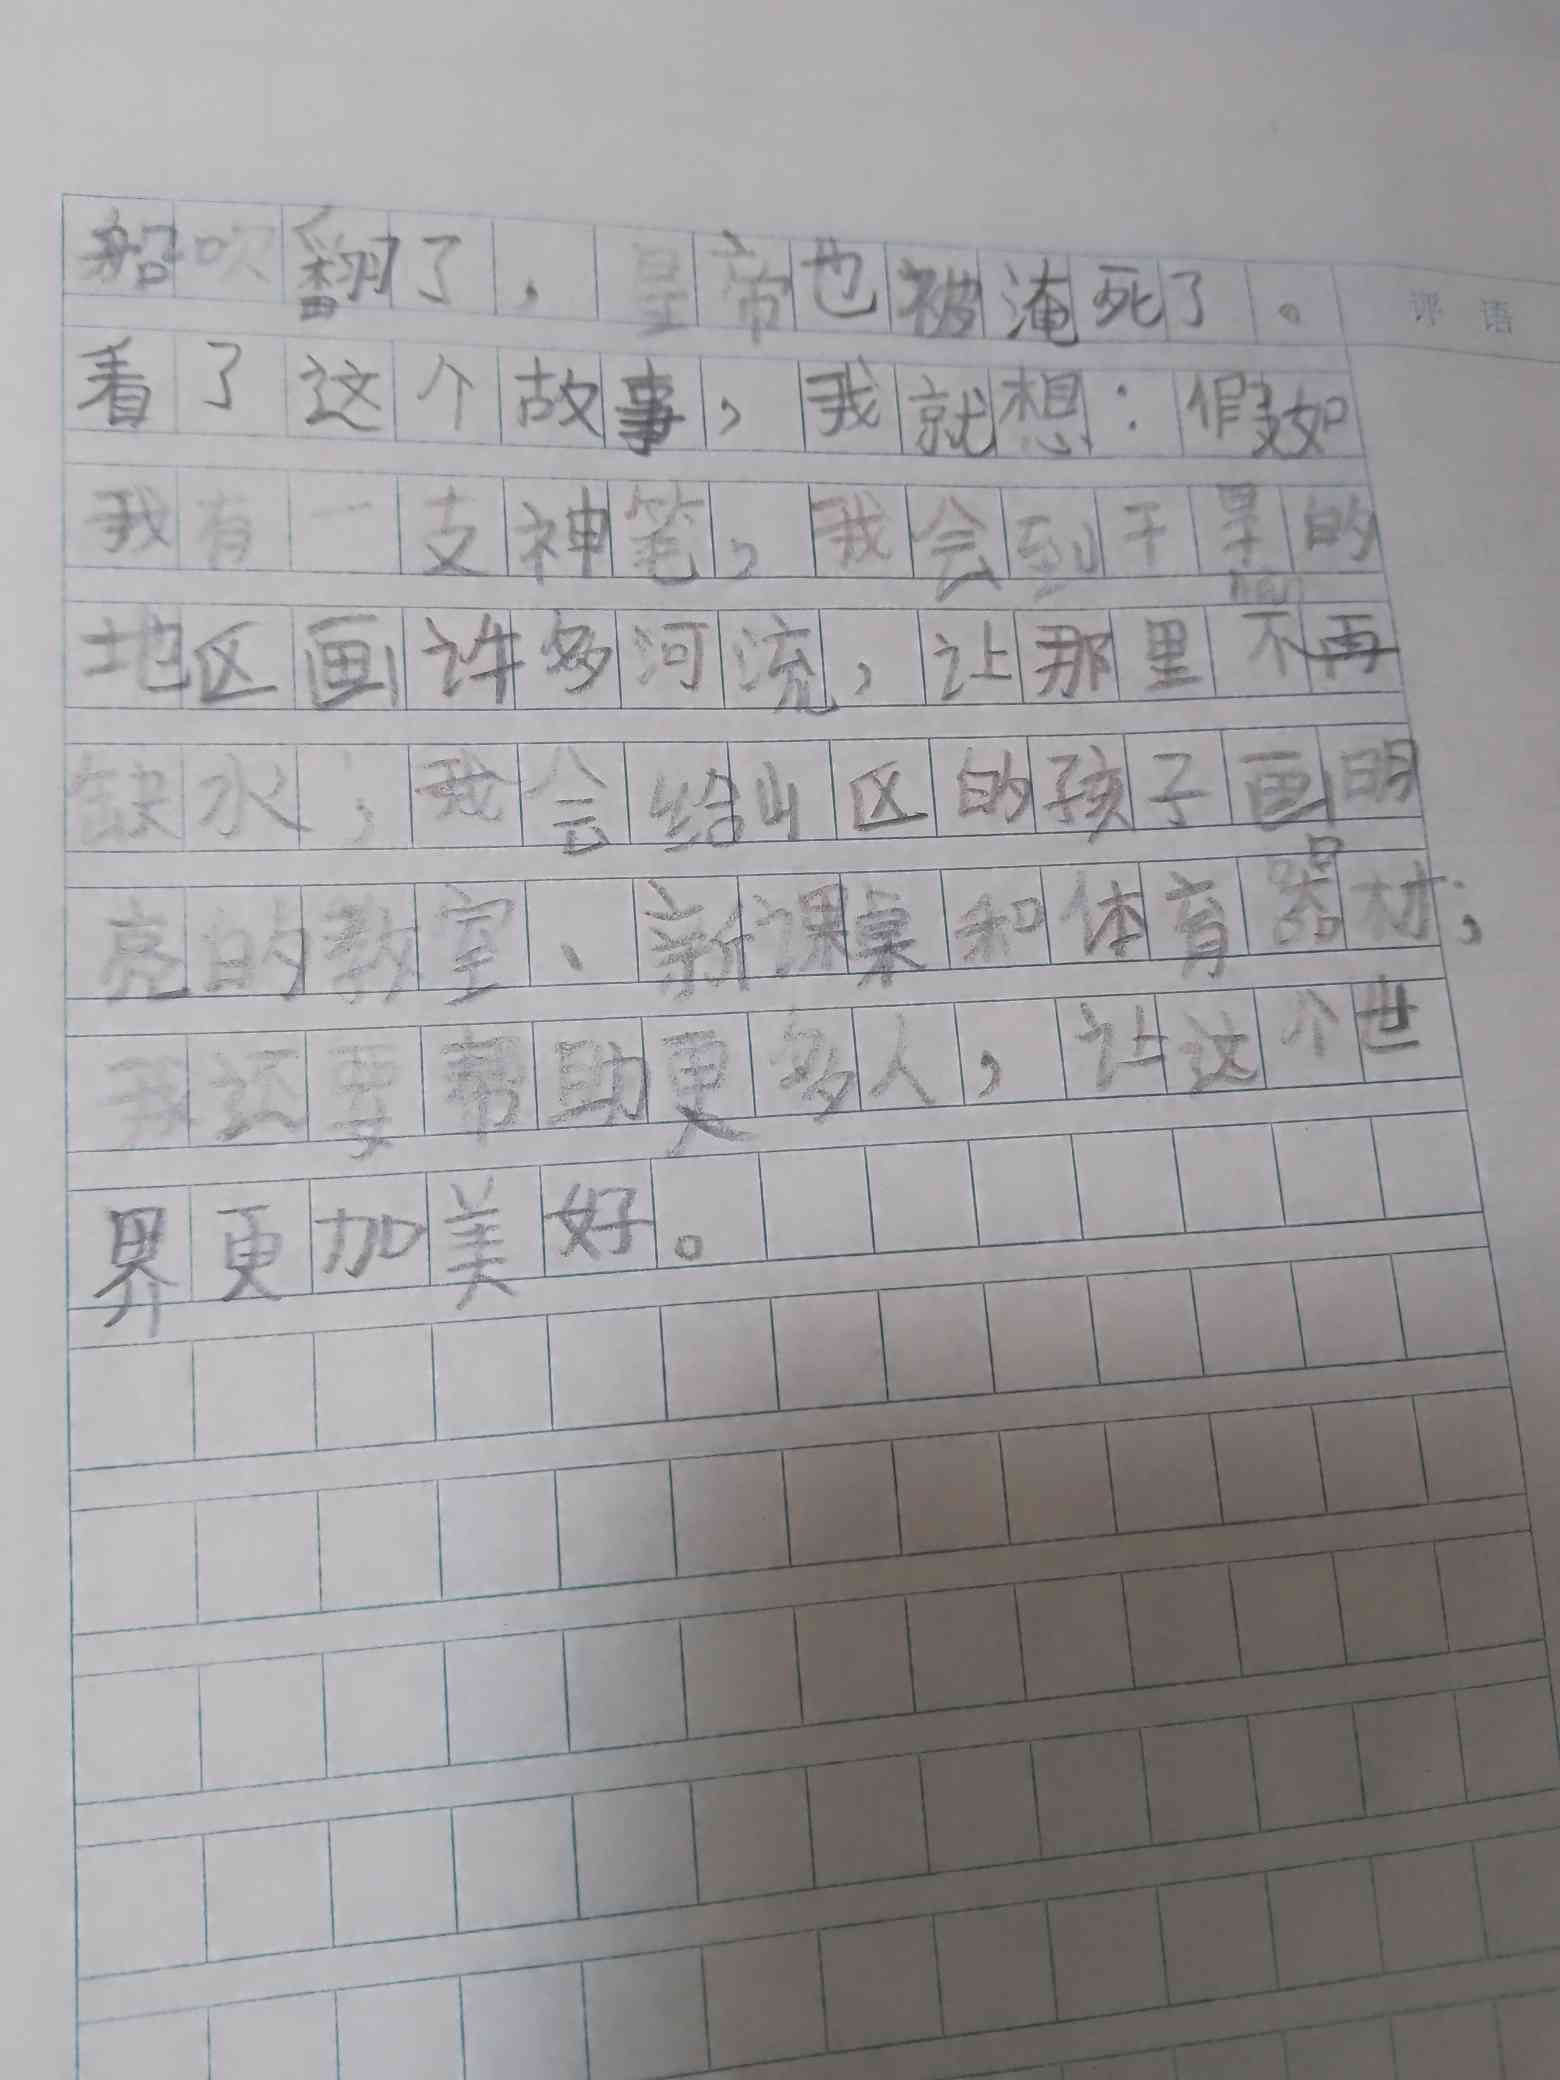 船吹翻了，皇帝也被淹死了。
评语
看了这个故事，我就想：假如
我有一支神笔，我会到干旱的
地区画许多河流，让那里不再
缺水；我会给山区的孩子画明
亮的教室、新课桌和体育器材；
我还要帮助更多人，让这个世
界更加美好。